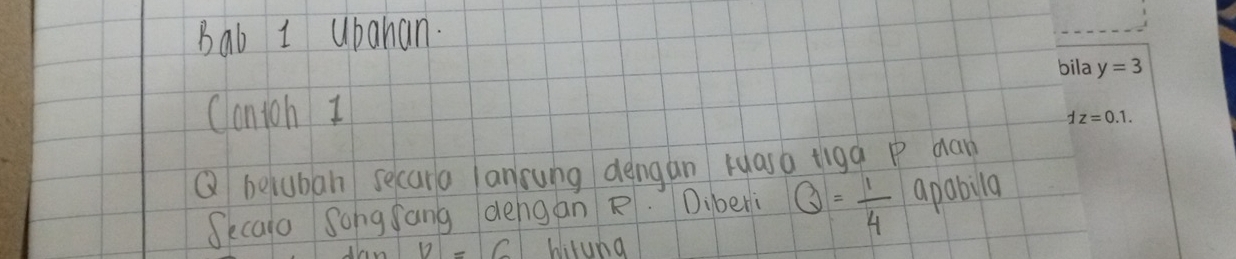 Bab 1 Ubahan.
Contoh 1
bila y = 3
z = 0.1.
Q berubah secara lansung dengan kuasa tiga P dan
Secara Songsang dengan R. Diberi Q = 1/4 apabila
dan = 6 hitung